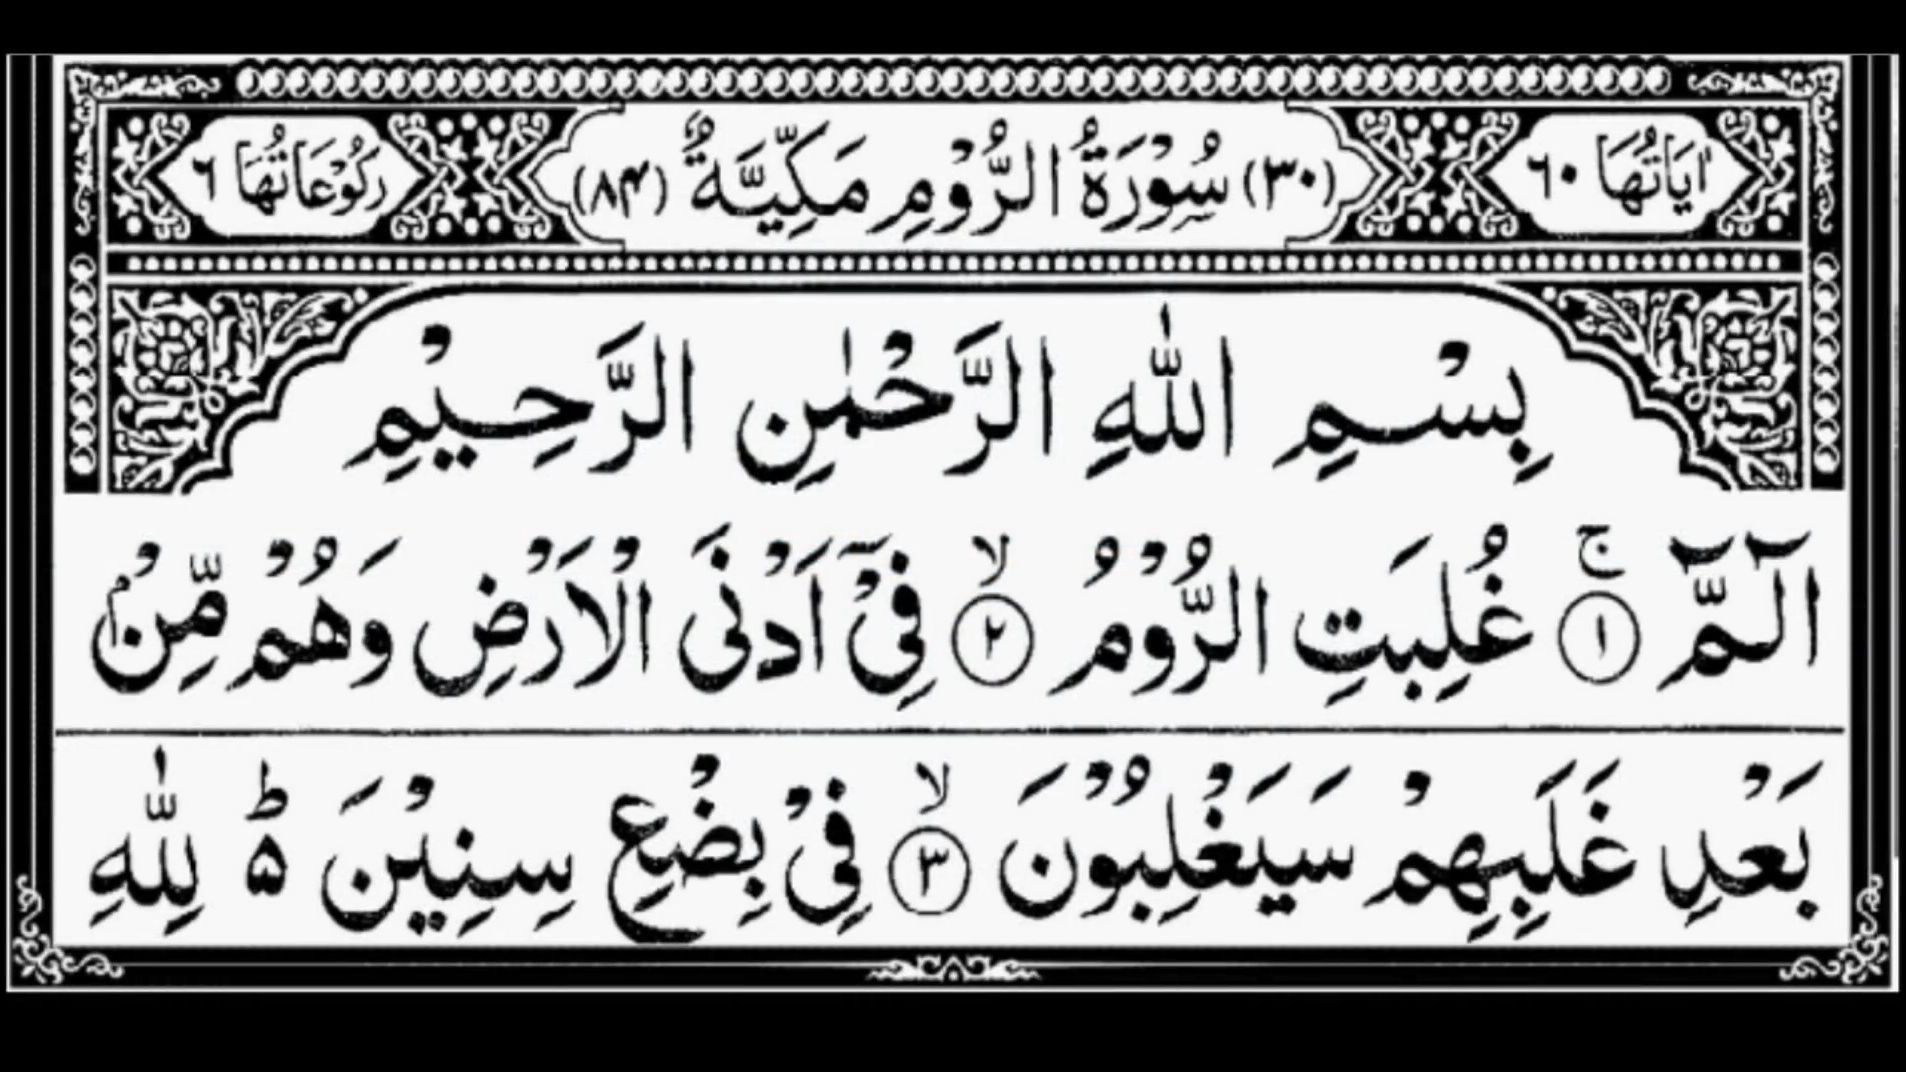 اٰيَاتُهَا ٦٠ (٣٠) سُوْرَةُ الرُّوْمِ مَكِّيَّةٌ (٨۴) رُكُوْعَاتُهَا ٦
بِسْمِ اللّٰهِ الرَّحْمٰنِ الرَّحِيْمِ
الٓمّٓ ۚ ١ غُلِبَتِ الرُّوْمُ ۙ ٢ فِيْٓ اَدْنَى الْاَرْضِ وَهُمْ مِّنْۢ
بَعْدِ غَلَبِهِمْ سَيَغْلِبُوْنَ ۙ ٣ فِيْ بِضْعِ سِنِيْنَ ؕ۵ لِلّٰهِ